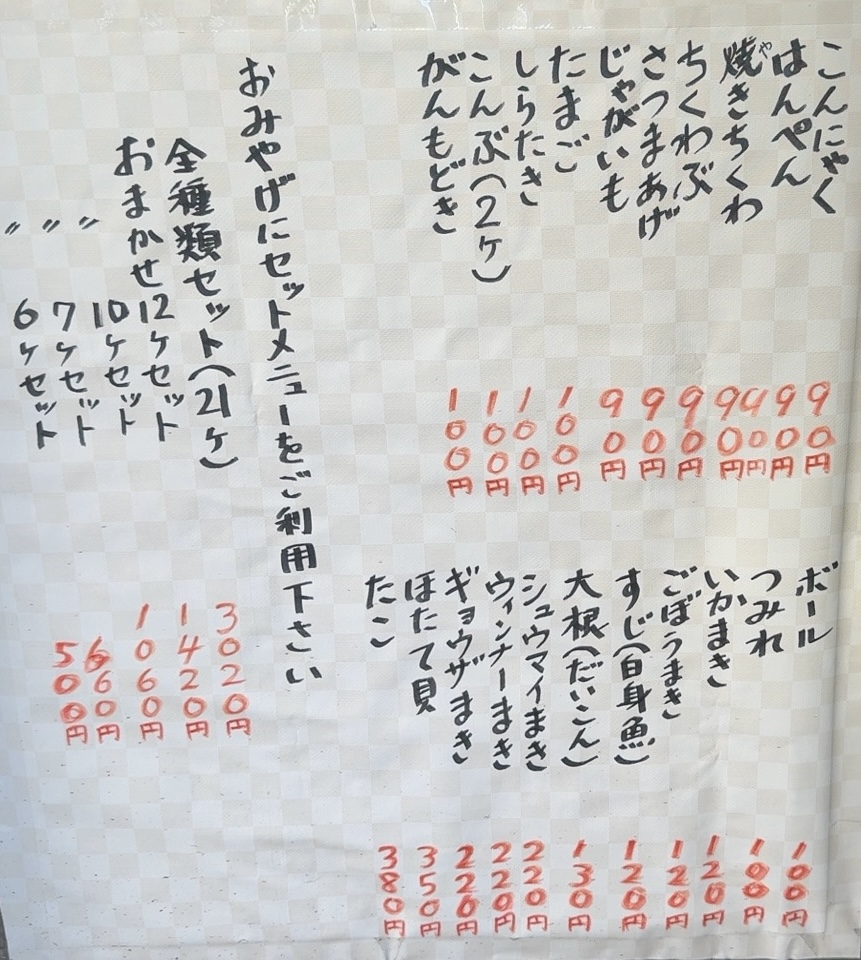 こんにゃく 90円
はんぺん 90円
90円
焼きちくわ 90円
や
ちくわぶ 90円
さつまあげ 90円
じゃがいも 90円
たまご 100円
しらたき 100円
こんぶ(2ケ) 100円
がんもどき 100円
ボール 100円
つみれ 100円
いかまき 120円
ごぼうまき 120円
すじ(白身魚) 120円
大根(だいこん) 130円
シュウマイまき 220円
ウィンナーまき 220円
ギョウザまき 220円
ほたて貝 350円
たこ 380円
おみやげにセットメニューをご利用下さい
全種類セット(21ケ) 3020円
おまかせ12ケセット 1420円
〃 10ケセット 1060円
〃 7ケセット 660円
〃 6ケセット 500円